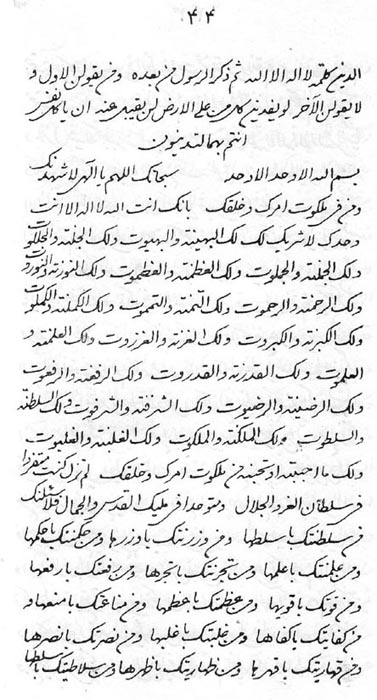 ٤٤
الدين كلمة لا اله الا الله ثم ذكر الرسول من بعده ومن يقولن الاول و
لا يقولن الآخر لو يفدين كل من على الارض لن يقبل عنه ان يا كل نفس
انتم بهما لتدينون
بسم الله الاوحد الاوحد سبحانك اللهم يا الهي لاشهدنك
ومن في ملكوت امرك وخلقك بانك انت الله لا اله الا انت
وحدك لا شريك لك لك البهيئة والبهيوت ولك الجلئة والجللوت
ولك الجملئة والجملوت ولك العظمئة والعظموت ولك النورئة والنوروت
ولك الرحمئة والرحموت ولك التمئة والتموت ولك الكملئة والكملوت
ولك الكبرئة والكبروت ولك العزئة والعززوت ولك العلمئة و
العلموت ولك القدرئة والقدروت ولك الرفعئة والرفعوت
ولك الرضيئة والرضيوت ولك الشرفئة والشرفوت ولك السلطئة
والسلطوت ولك الملكئة والملكوت ولك الغلبئة والغلبوت
ولك ما احببته او تحبنه من ملكوت امرك وخلقك لم تزل كنت متفردا
في سلطان العز والجلال ومتوحدا في مليك القدس والجمال فلاسئلنك
من سلطنتك باسلطها ومن وزرنتك باوزرها ومن حكمتك باحكمها
ومن علمئتك باعلمها ومن تجرئتك باتجرها ومن رفعتك بارفعها
ومن قوتك باقويها ومن عظمتك باعظمها ومن مناعتك بامنعها و
من كفايتك باكفاها ومن غلبتك باغلبها ومن نصرتك بانصرها
ومن قهاريتك باقهرها ومن ظهاريتك باظهرها ومن سلاطيتك باسلطها